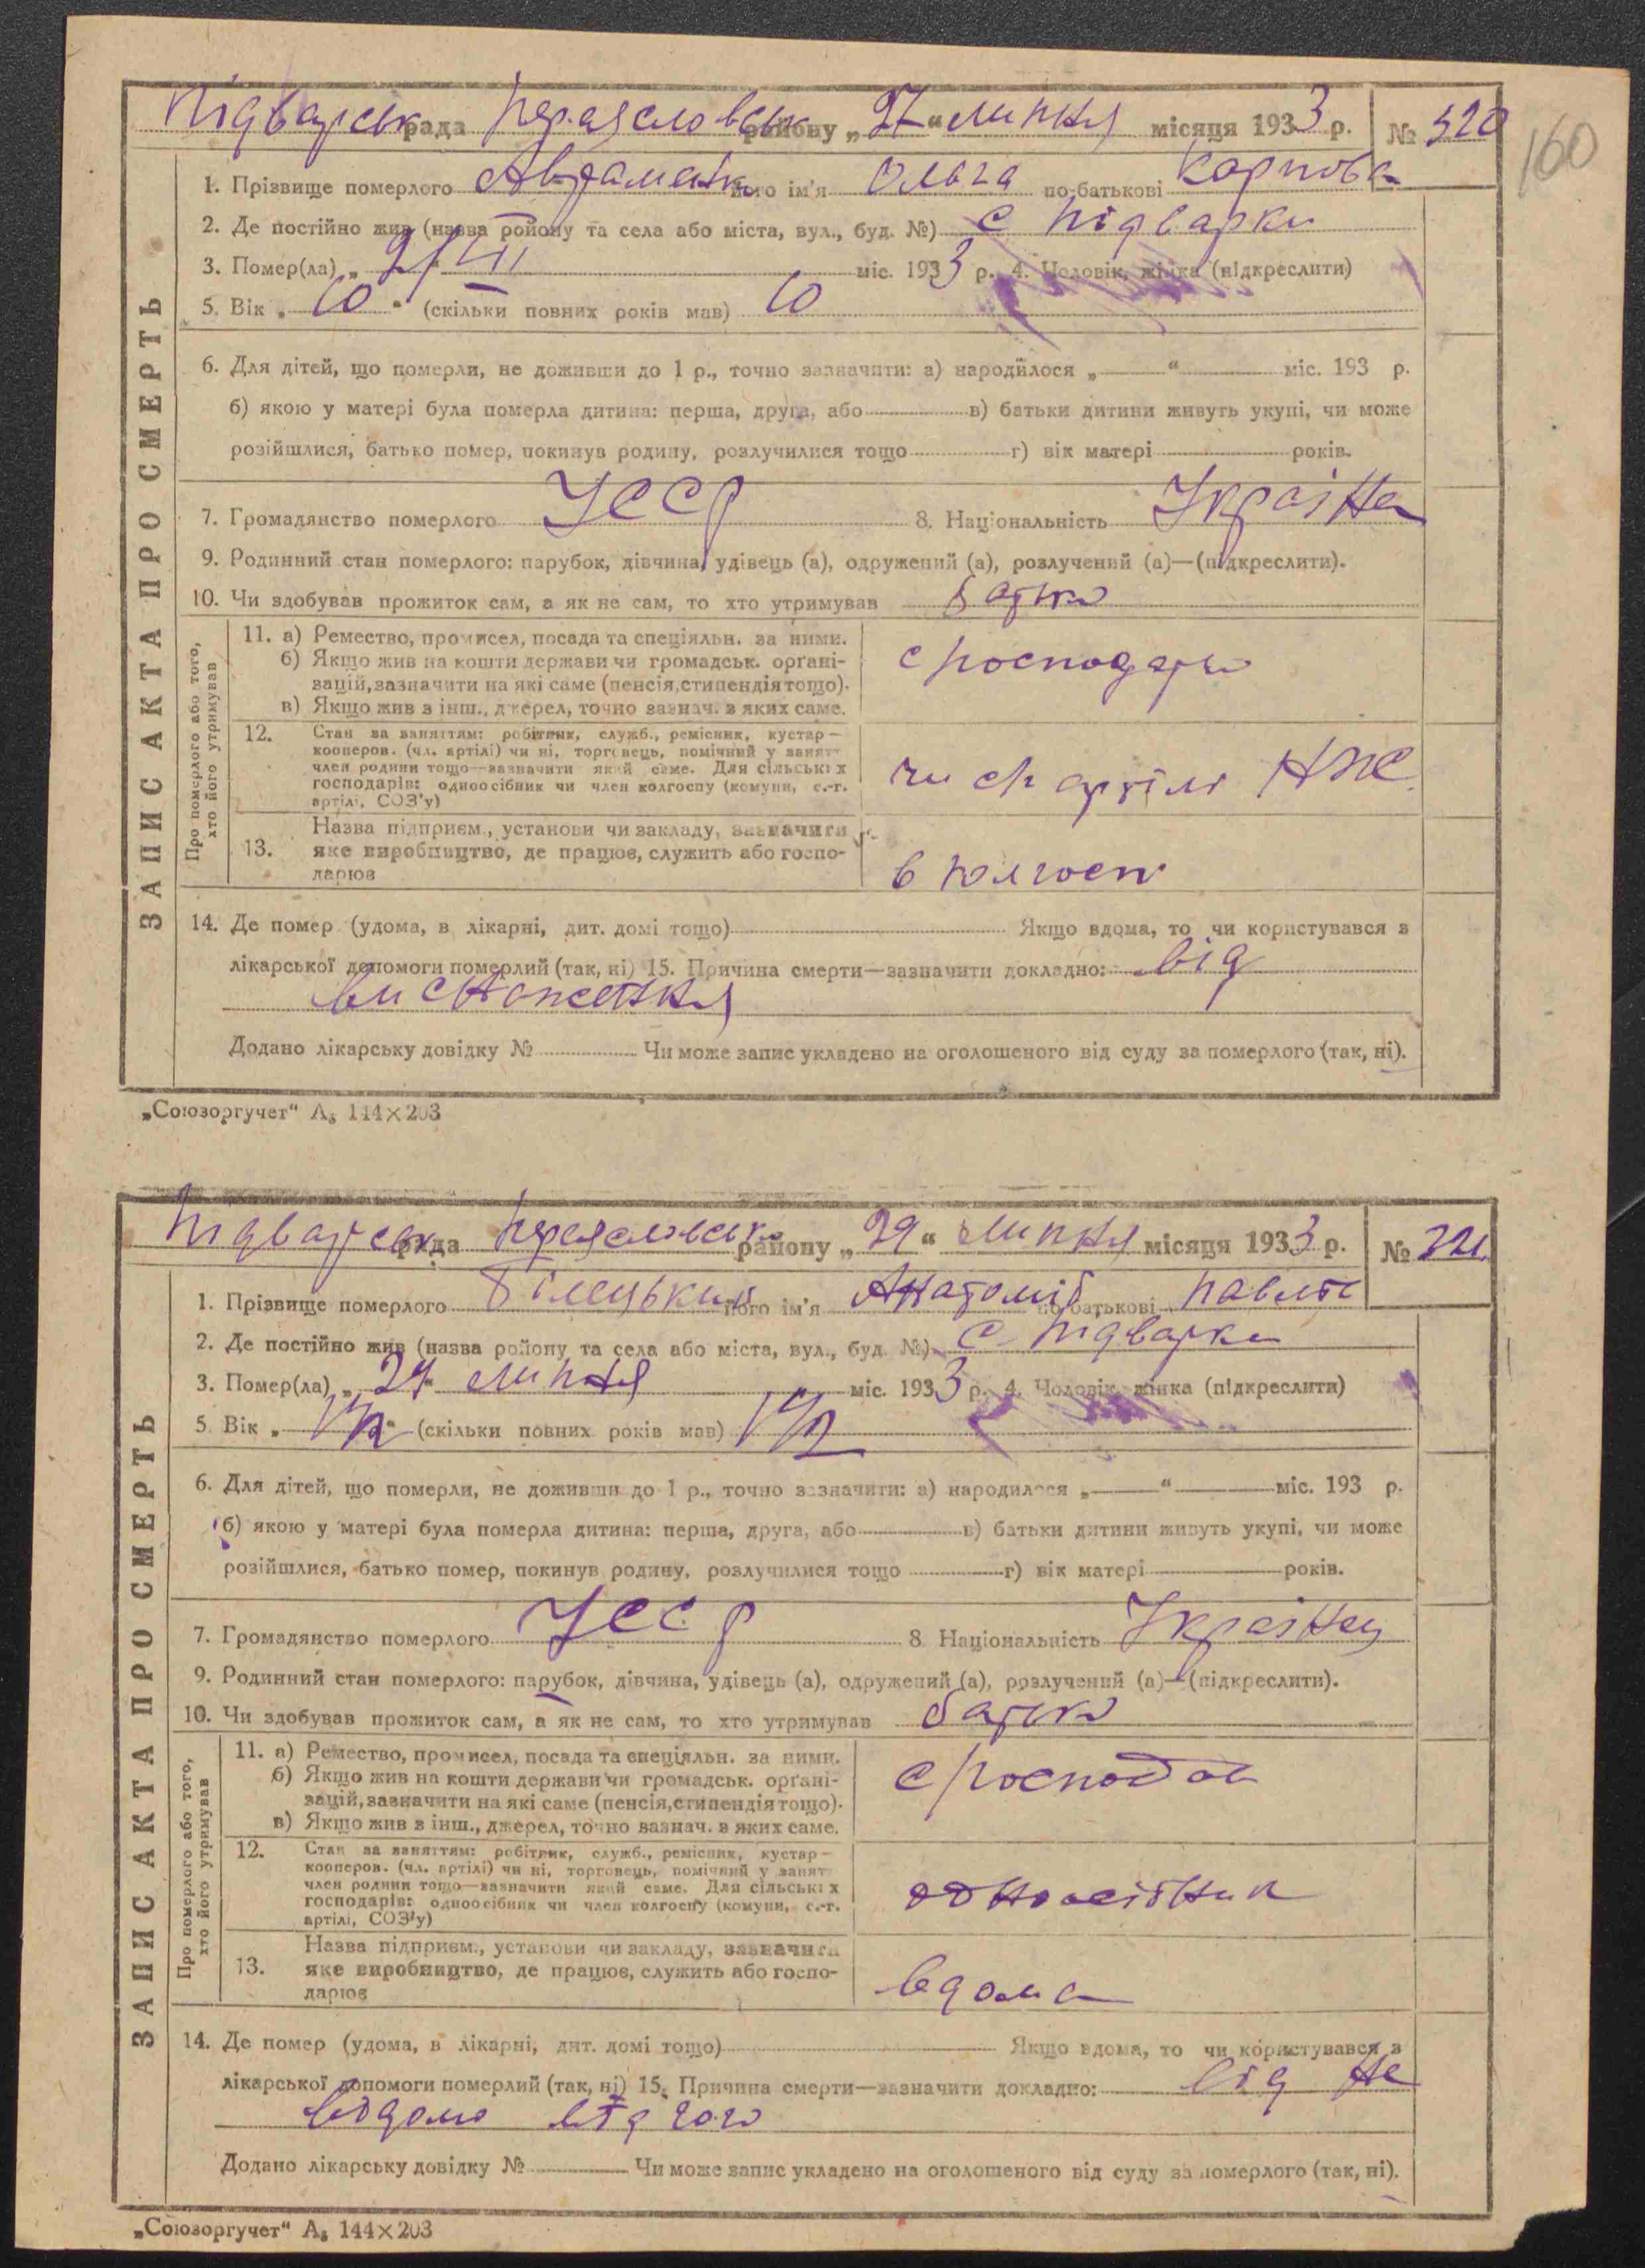 160
Підварськ рада Переясловськ району „27“ липня місяця 1933 р. № 320
1. Прізвище померлого Авраменко його ім'я Ольга по-батькові Карпова
2. Де постійно жив (назва ройону та села або міста, вул., буд. №) с Підварки
3. Помер(ла) „ міс. 1933 р. 4. Чоловік, жінка (підкреслити)
5. Вік „10“ (скільки повних років мав) 10
6. Для дітей, що померли, не доживши до 1 р., точно зазначити: а) народилося „ “ міс. 193 р.
б) якою у матері була померла дитина: перша, друга, або в) батьки дитини живуть укупі, чи може
розійшлися, батько помер, покинув родину, розлучилися тощо г) вік матері років.
7. Громадянство померлого УССР 8. Національність Україн
9. Родинний стан померлого: парубок, дівчина, удівець (а), одружений (а), розлучений (а)—(підкреслити).
10. Чи здобував прожиток сам, а як не сам, то хто утримував батько
ЗАПИС АКТА ПРО СМЕРТЬ
Про померлого або того, хто його утримував
11. а) Ремество, промисел, посада та спеціяльн. за ними.
б) Якщо жив на кошти держави чи громадськ. орґані-
зацій, зазначити на які саме (пенсія, стипендія тощо).
в) Якщо жив з інш., джерел, точно зазнач. з яких саме.
с господарь
12. Стан за заняттям: робітник, служб., ремісник, кустар—
кооперов. (чл. артілі) чи ні, торговець, помічний у занят—
член родини тощо—зазначити який саме. Для сільських
господарів: одноосібник чи член колгоспу (комуни, с.-г.
артілі, СОЗ'у)
артілі
13. Назва підприєм., установи чи закладу, зазначити
яке виробництво, де працює, служить або госпо-
дарює
в колгосп
14. Де помер (удома, в лікарні, дит. домі тощо) Якщо вдома, то чи користувався з
лікарської допомоги померлий (так, ні) 15. Причина смерти—зазначити докладно: від
виснаження
Додано лікарську довідку № Чи може запис укладено на оголошеного від суду за померлого (так, ні).
„Союзоргучет“ А₅ 144×203
Підварськ рада Переясловськ району „29“ липня місяця 1933 р. № 321
1. Прізвище померлого Білецький його ім'я Анатолій по батькові Павлов
2. Де постійно жив (назва ройону та села або міста, вул., буд. №) с Підварки
3. Помер(ла) „27“ липня міс. 1933 р. 4. Чоловік, жінка (підкреслити)
5. Вік „1½“ (скільки повних років мав) 1½
6. Для дітей, що померли, не доживши до 1 р., точно зазначити: а) народилося „ “ міс. 193 р.
б) якою у матері була померла дитина: перша, друга, або в) батьки дитини живуть укупі, чи може
розійшлися, батько помер, покинув родину, розлучилися тощо г) вік матері років.
7. Громадянство померлого УССР 8. Національність Українец
9. Родинний стан померлого: парубок, дівчина, удівець (а), одружений (а), розлучений (а)—(підкреслити).
10. Чи здобував прожиток сам, а як не сам, то хто утримував батько
ЗАПИС АКТА ПРО СМЕРТЬ
Про померлого або того, хто його утримував
11. а) Ремество, промисел, посада та спеціяльн. за ними.
б) Якщо жив на кошти держави чи громадськ. орґані-
зацій, зазначити на які саме (пенсія, стипендія тощо).
в) Якщо жив з інш., джерел, точно зазнач. в яких саме.
с господар
12. Стан за заняттям: робітник, служб., ремісник, кустар—
кооперов. (чл. артілі) чи ні, торговець, помічний у занят—
член родини тощо—зазначити який саме. Для сільських
господарів: одноосібник чи член колгоспу (комуни, с.-г.
артілі, СОЗ'у)
одноосібник
13. Назва підприєм., установи чи закладу, зазначити
яке виробництво, де працює, служить або госпо-
дарює
вдома
14. Де помер (удома, в лікарні, дит. домі тощо) Якщо вдома, то чи користувався з
лікарської допомоги померлий (так, ні) 15. Причина смерти—зазначити докладно: від не
відомо від чого
Додано лікарську довідку № Чи може запис укладено на оголошеного від суду за померлого (так, ні).
„Союзоргучет“ А₅ 144×203